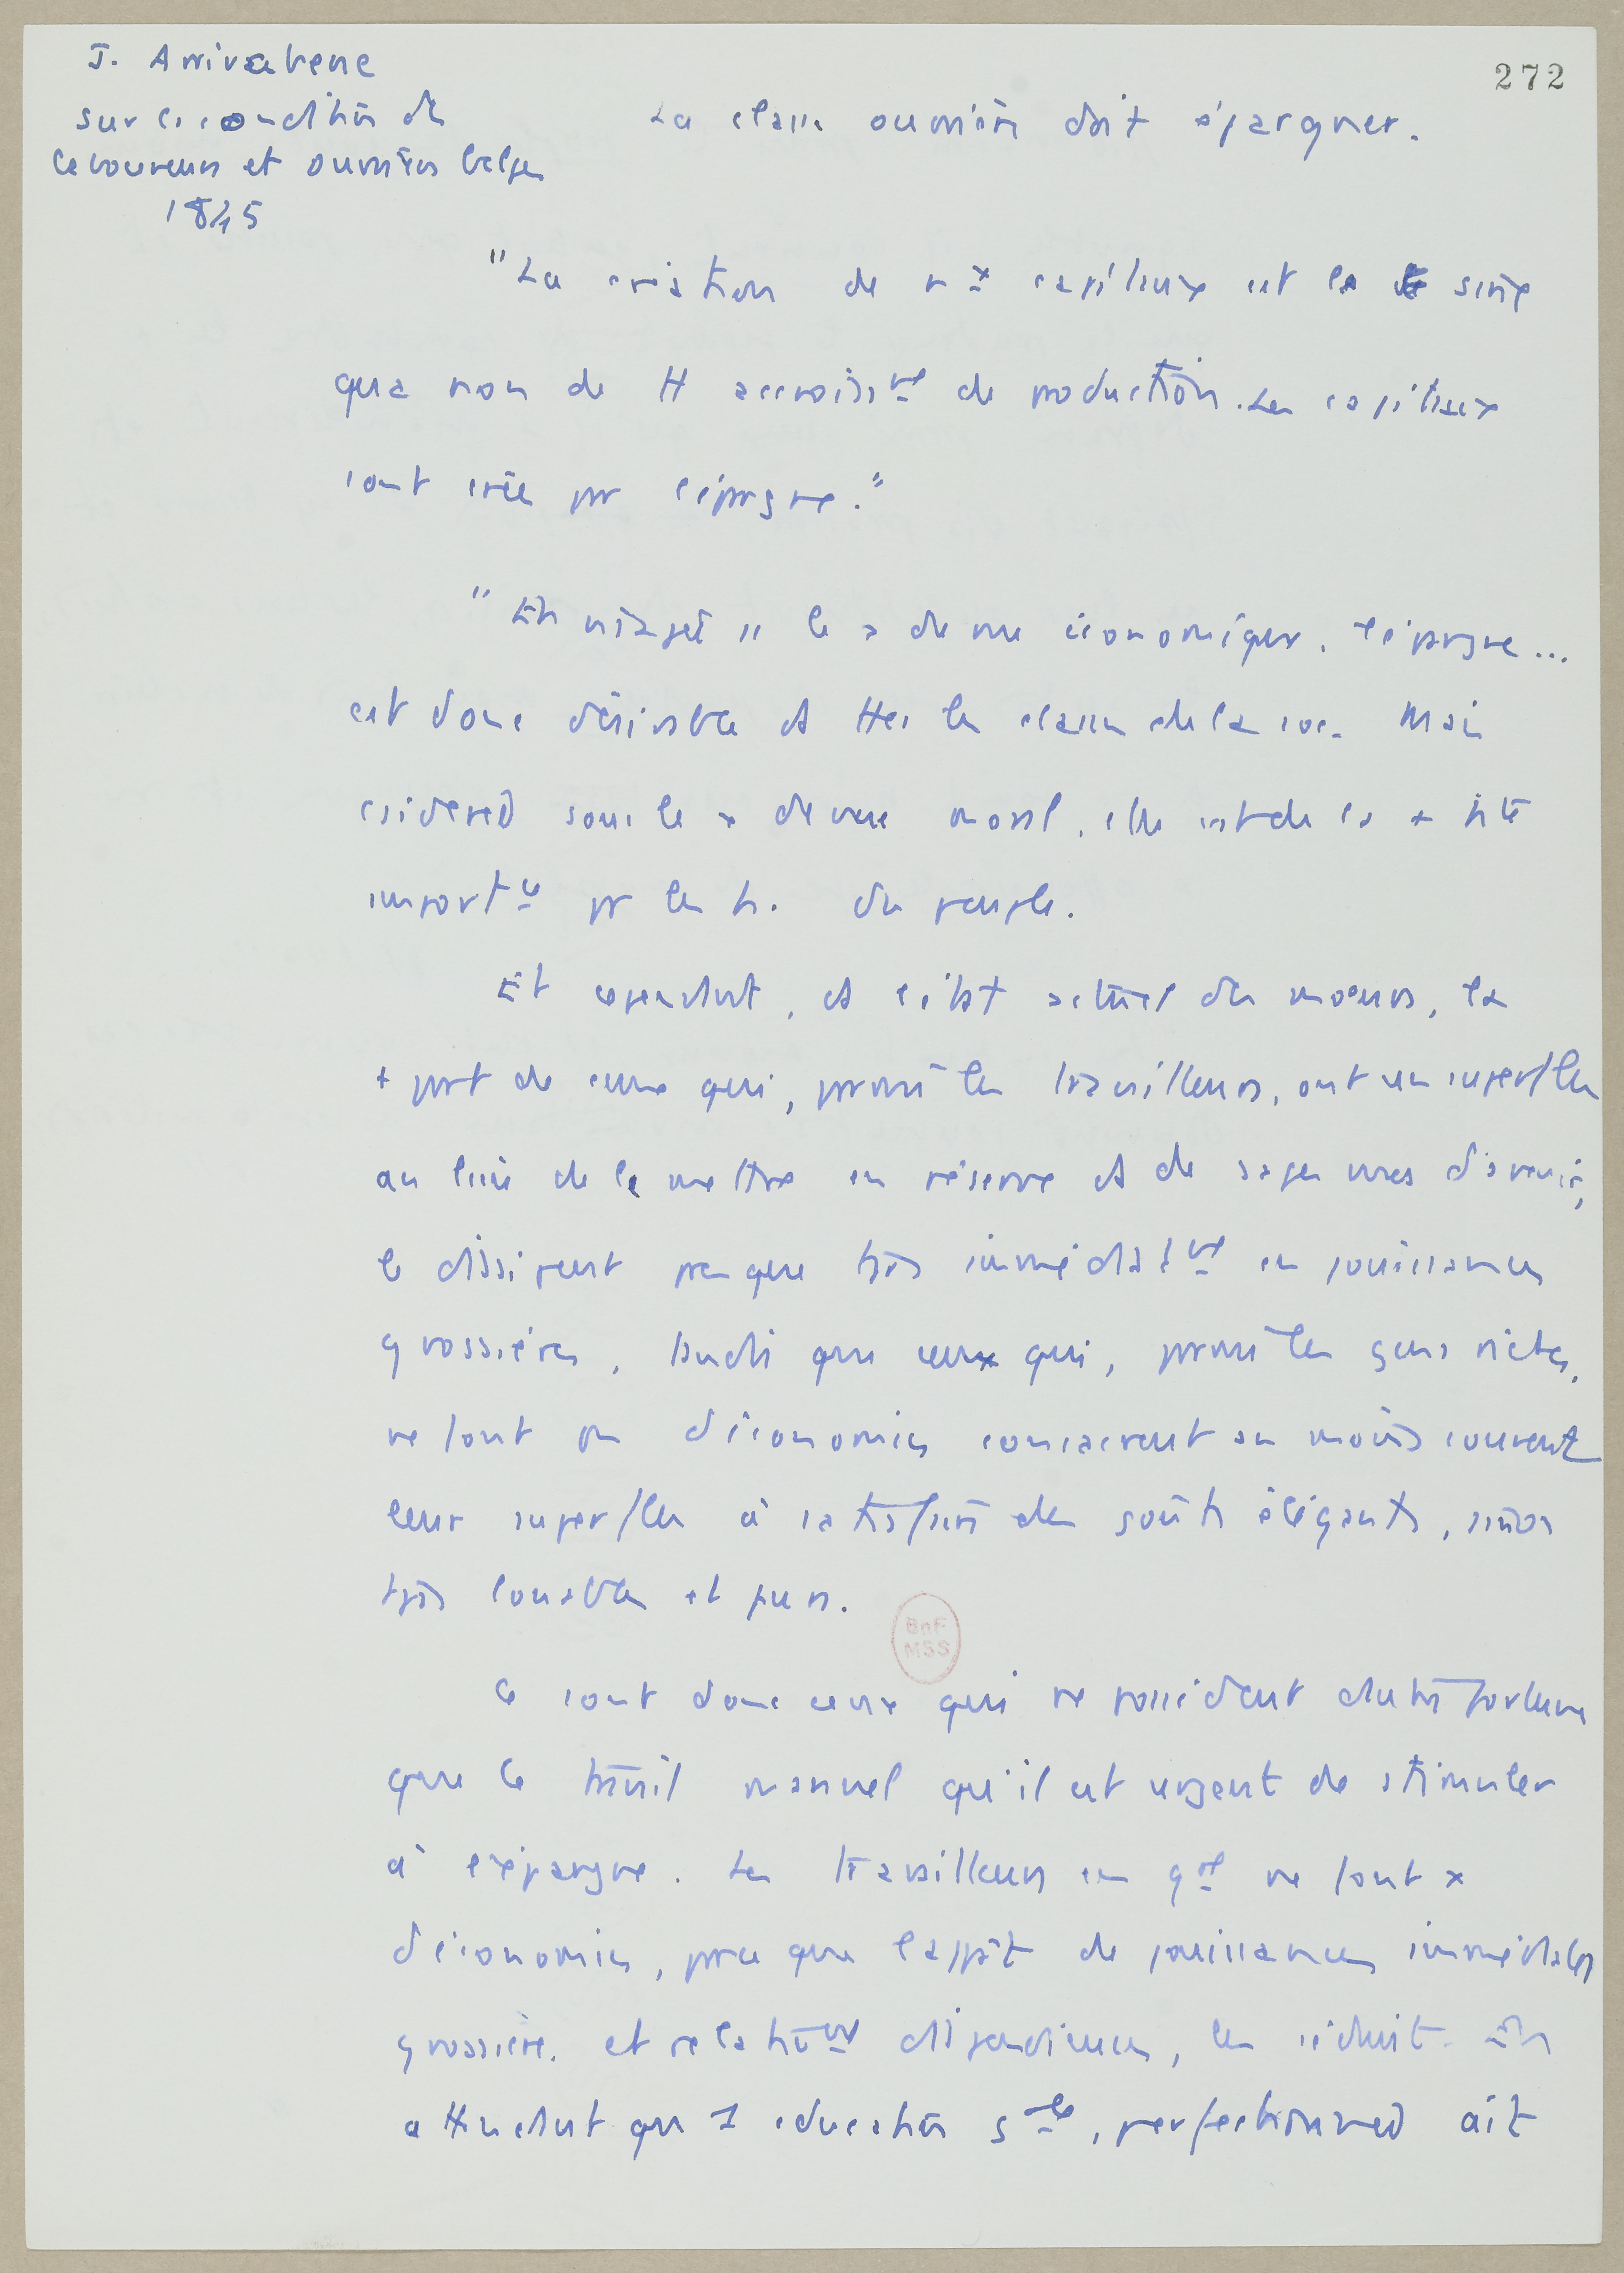 J. Arrivabene
272
sur la condition des
La classe ouvrière doit épargner.
laboureurs et ouvriers belges
1845
"La création de nx capitaux est la sine
qua non de tt accroissmt de production. Les capitaux
sont créés par l'épargne."
"Envisagé ss le pt de vue économique, l'épargne...
est donc désirable ds ttes les classes de la soc. Mais
csidered sous le pt de vue moral, elle est de la + hte
importce pr les h. du peuple.
Et cependant, ds l'état actuel des moeurs, la
+ part de ceux qui, parmi les travailleurs, ont un superflu
au lieu de le mettre en réserve ds de sages vues d'avenir,
le dissipent presque tjrs immédiatmt en jouissances
grossières, tandis que ceux qui, parmi les gens riches,
ne font pas d'économies consacrent au moins souvent
leur superflu à satisfaire des goûts élégants, sinon
tjrs louables et purs.
BnF
MSS
Ce sont donc ceux qui ne possèdent d'autre fortune
que le travail manuel qu'il est urgent de stimuler
à l'épargne. Les travailleurs en gal ne font x
d'économies, parce que l'appât de jouissances immédiates
grossières et relativmt dispendieuses, les séduit. En
attendant qu' 1 éducation gale, perfectionned ait